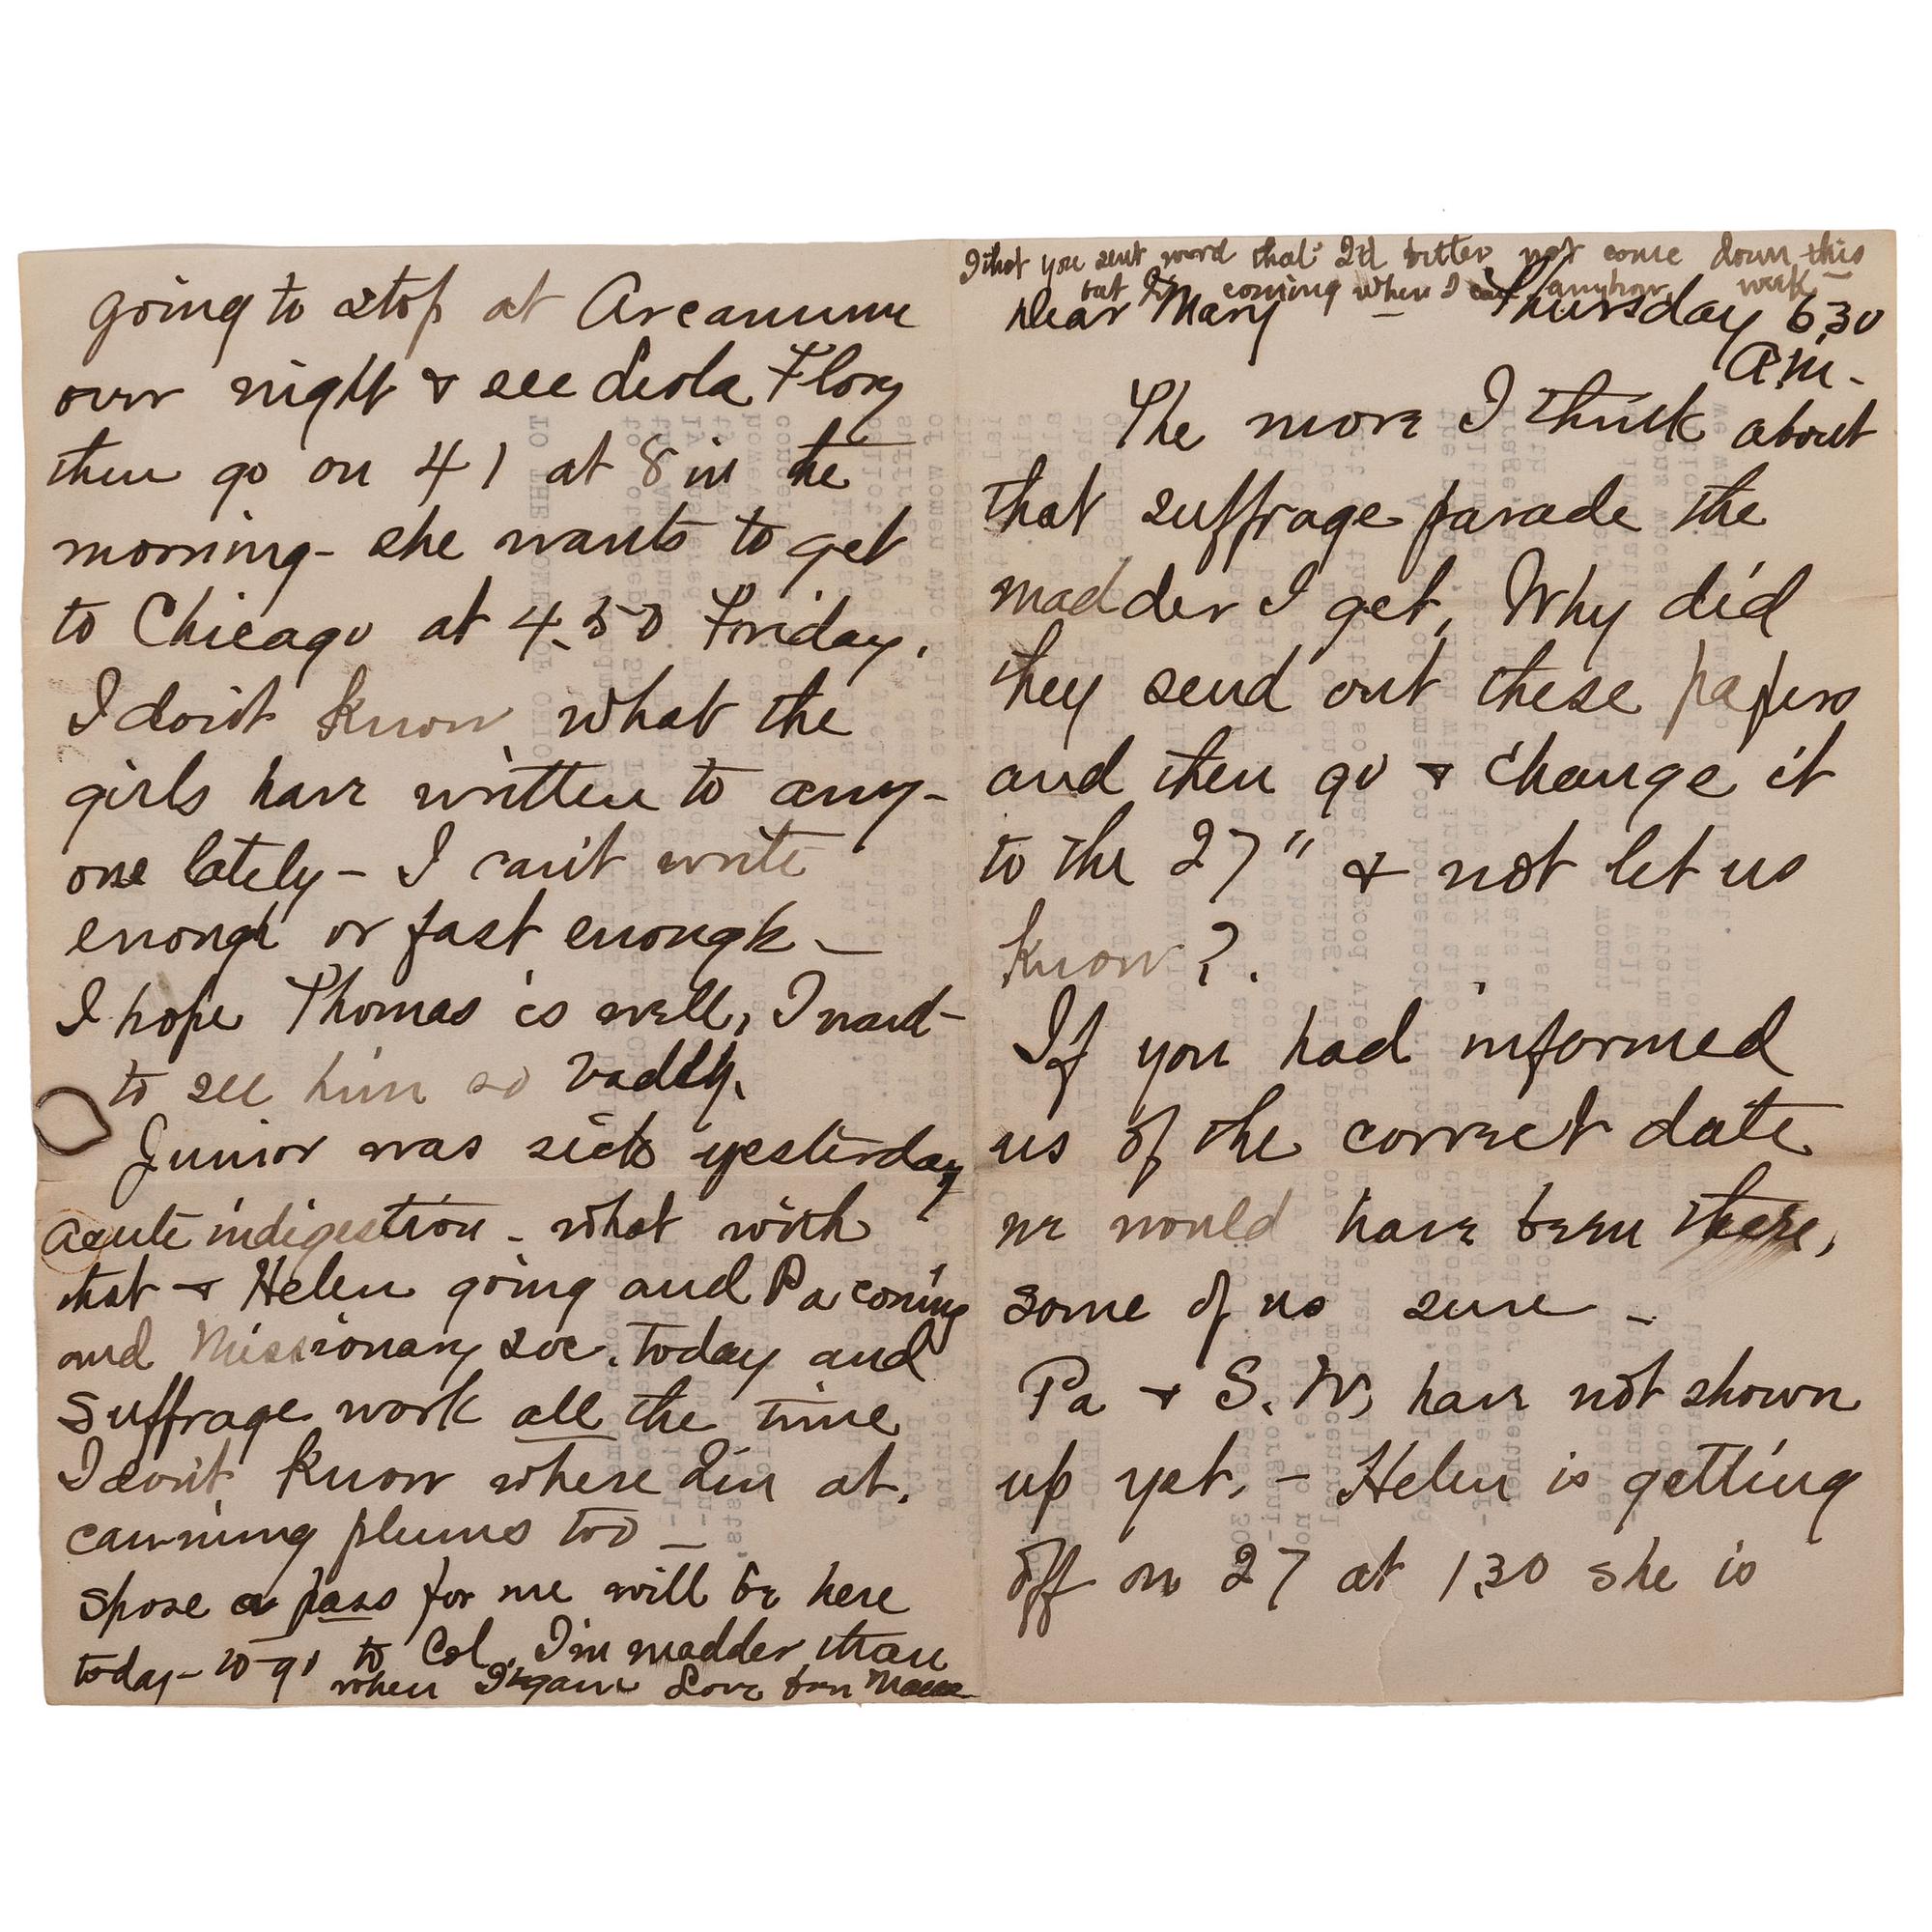 I that you sent word that I'd better not come down this
week
but I'm coming when I can anyhow
Dear Mary Thursday 6 30
A.M.
The more I think about
that suffrage parade the
madder I get. Why did
they send out these papers
and then go & change it
to the 27" & not let us
know?.
If you had informed
us of the correct date
we would have been there,
some of us sure -
Pa & S. W. have not shown
up yet. - Helen is getting
off on 27 at 1.30 she is
going to stop at Arcanum
over night & see Leola Flory
then go on 41 at 8 in the
morning - she wants to get
to Chicago at 4.50 Friday.
I don't know what the
girls have written to any-
one lately - I can't write
enough or fast enough -
I hope Thomas is well, I want
to see him so badly.
Junior was sick yesterday
acute indigestion - what with
that & Helen going and Pa coming
and Missionary Soc. today and
Suffrage work all the time
I don't know where I'm at.
canning plums too -
spose a pass for me will be here
today - to go to Col. I'm madder than
when I began Love